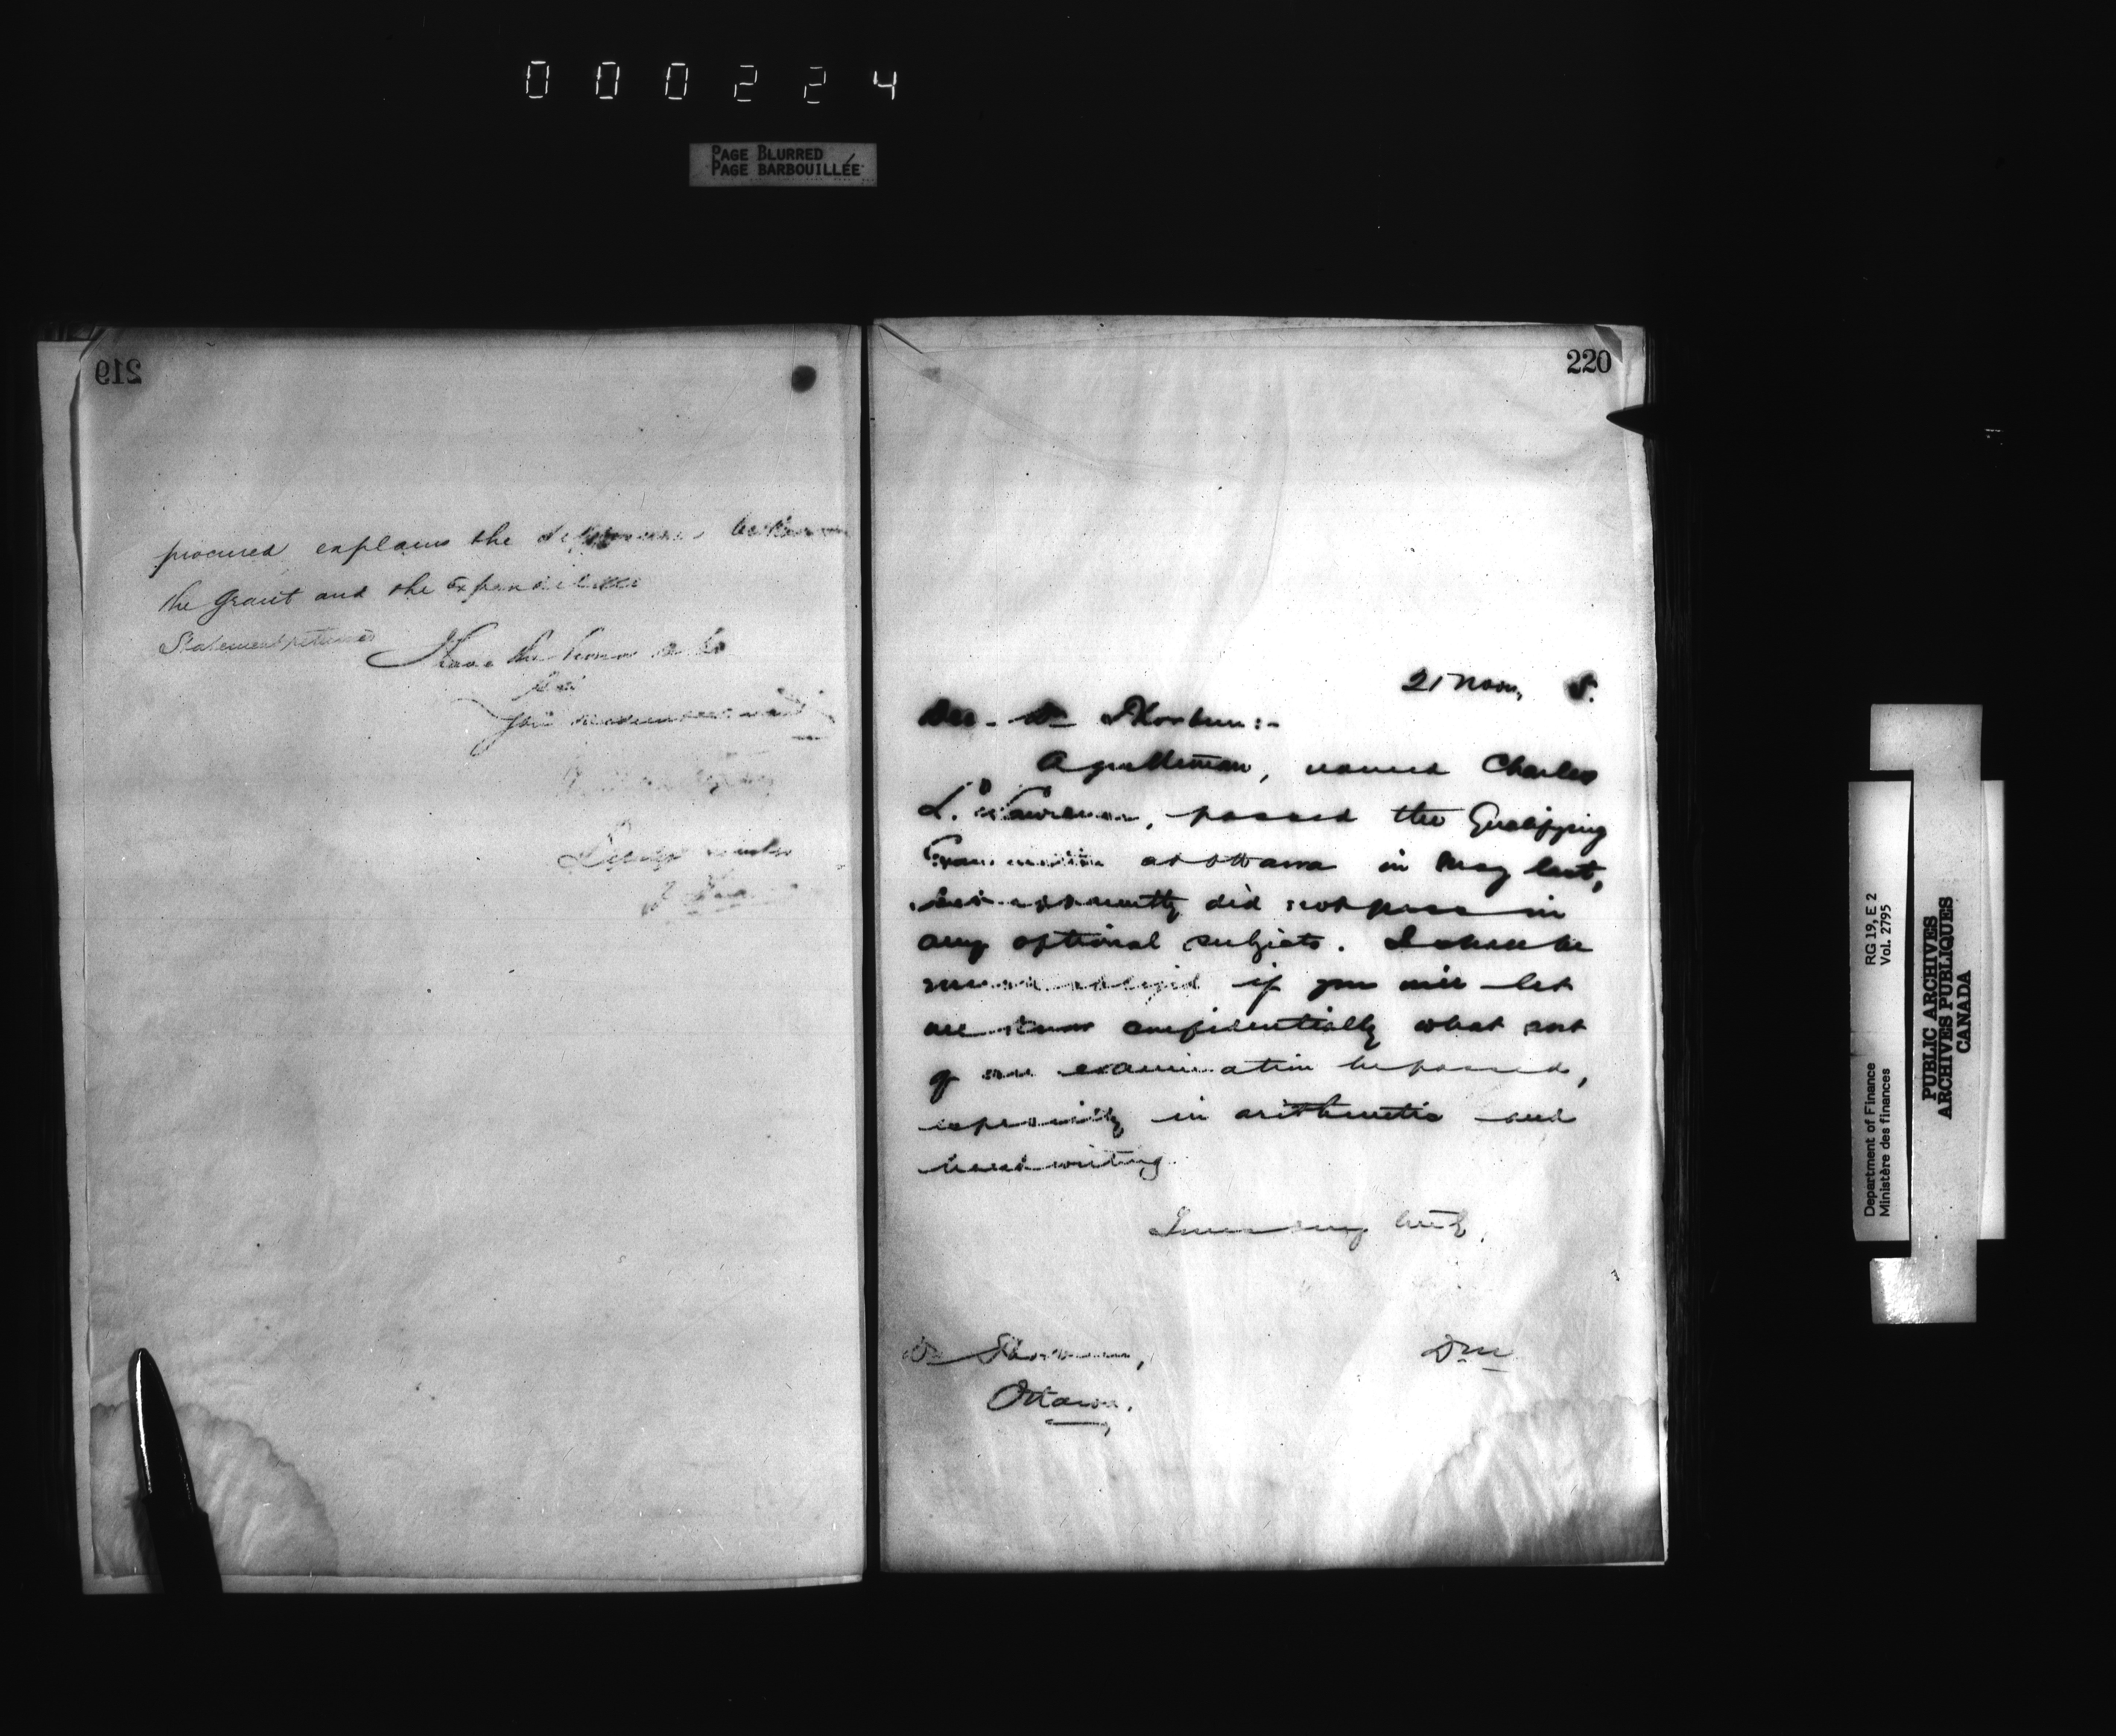 000224
PAGE BLURRED
PAGE BARBOUILLÉE
219
procured explains the difference between
the grant and the Expenditure
Statement returned
Have the honor to be
Sir
Your
Deputy
220
21 Nov, 8.
Dr Thorburn:-
A gentleman, named Charles
L. Lawrence, passed the Qualifying
Examination at Ottawa in May last,
but apparently did not pass in
any optional subjects. I shall be
much obliged if you will let
me know confidentially what sort
of an examination he passed,
especially in arithmetic and
handwriting.
Yours very truly,
Dr Thorburn,
Ottawa.
RG 19, E 2
Vol. 2795
Department of Finance
Ministère des finances
PUBLIC ARCHIVES
ARCHIVES PUBLIQUES
CANADA